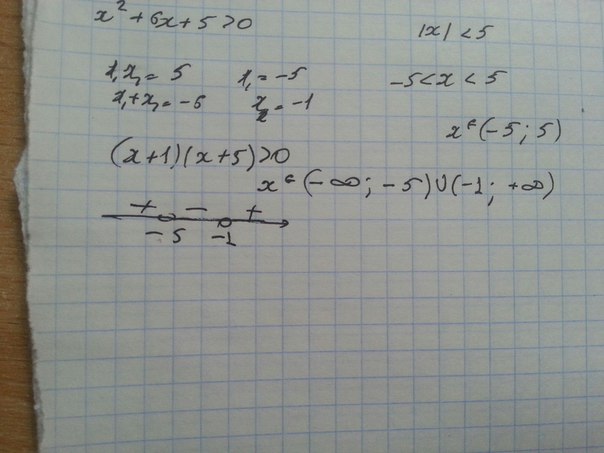 x² + 6x + 5 > 0
|x| < 5
x₁x₂ = 5
x₁ = -5
-5 < x < 5
x₁ + x₂ = -6
x₂ = -1
x ∈ (-5; 5)
(x+1)(x+5) > 0
x ∈ (-∞; -5) ∪ (-1; +∞)
+ - +
-5 -1